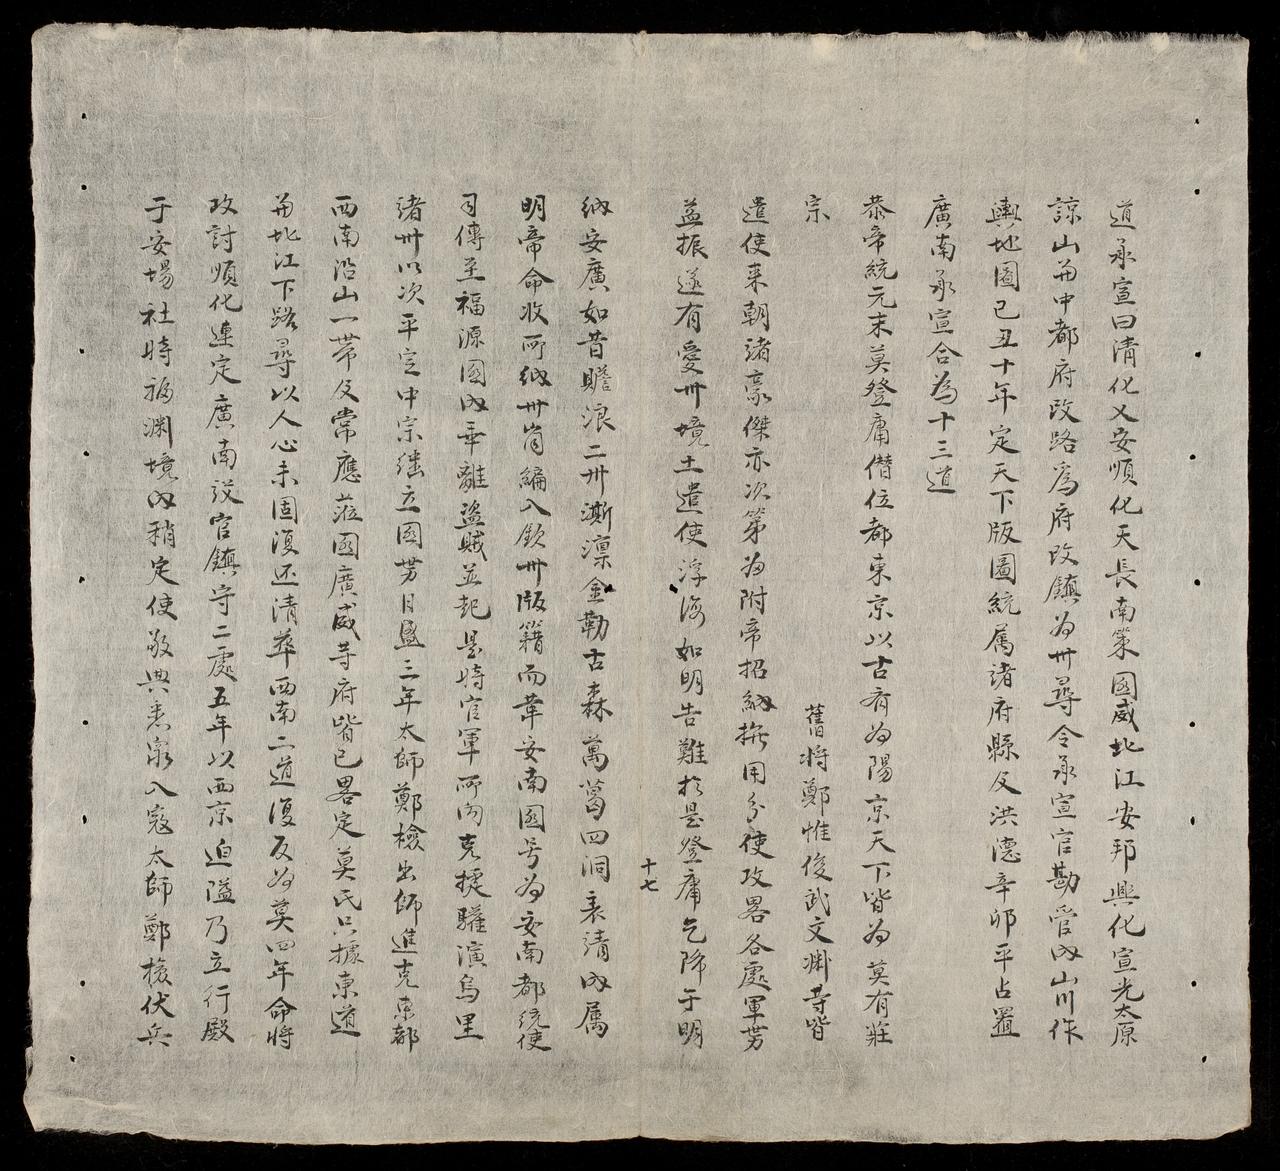 道承宣曰清化乂安順化天長南策國威北江安邦興化宣光太原
諒山畨中都府改路為府改鎮为卅尋令承宣官勘管內山川作
輿地圖己丑十年定天下版圖統属諸府縣及洪德辛卯平占置
廣南承宣合為十三道
恭帝統元末莫登庸僭位都東京以古有为陽京天下皆为莫有莊
宗
舊将鄭惟俊武文淵䓁皆
遣使来朝諸豪傑亦次第为附帝招納撫用分使攻畧各處軍势
益振遂有愛卅境土遣使浮海如明告難於是登庸乞降于明
十七
納安廣如昔瞻浪二卅澌凛金勒古森萬葛四洞表請內属
明帝命收所納卅峝編入欽卅版籍而革安南國号为安南都統使
司傳至福源國內乖離盜賊並起是時官軍所向克捷驩演烏里
諸卅以次平定中宗继立國势日盛三年太師鄭檢出師進克東都
西南沿山一带及常應蒞國廣威䓁府皆已畧定莫氏只據東道
畨北江下路尋以人心未固復还清華西南二道復反为莫四年命將
攻討順化連定廣南設官鎮守二處五年以西京迫隘乃立行殿
于安場社時福渊境內稍定使敬典悉衆入寇太師鄭檢伏兵